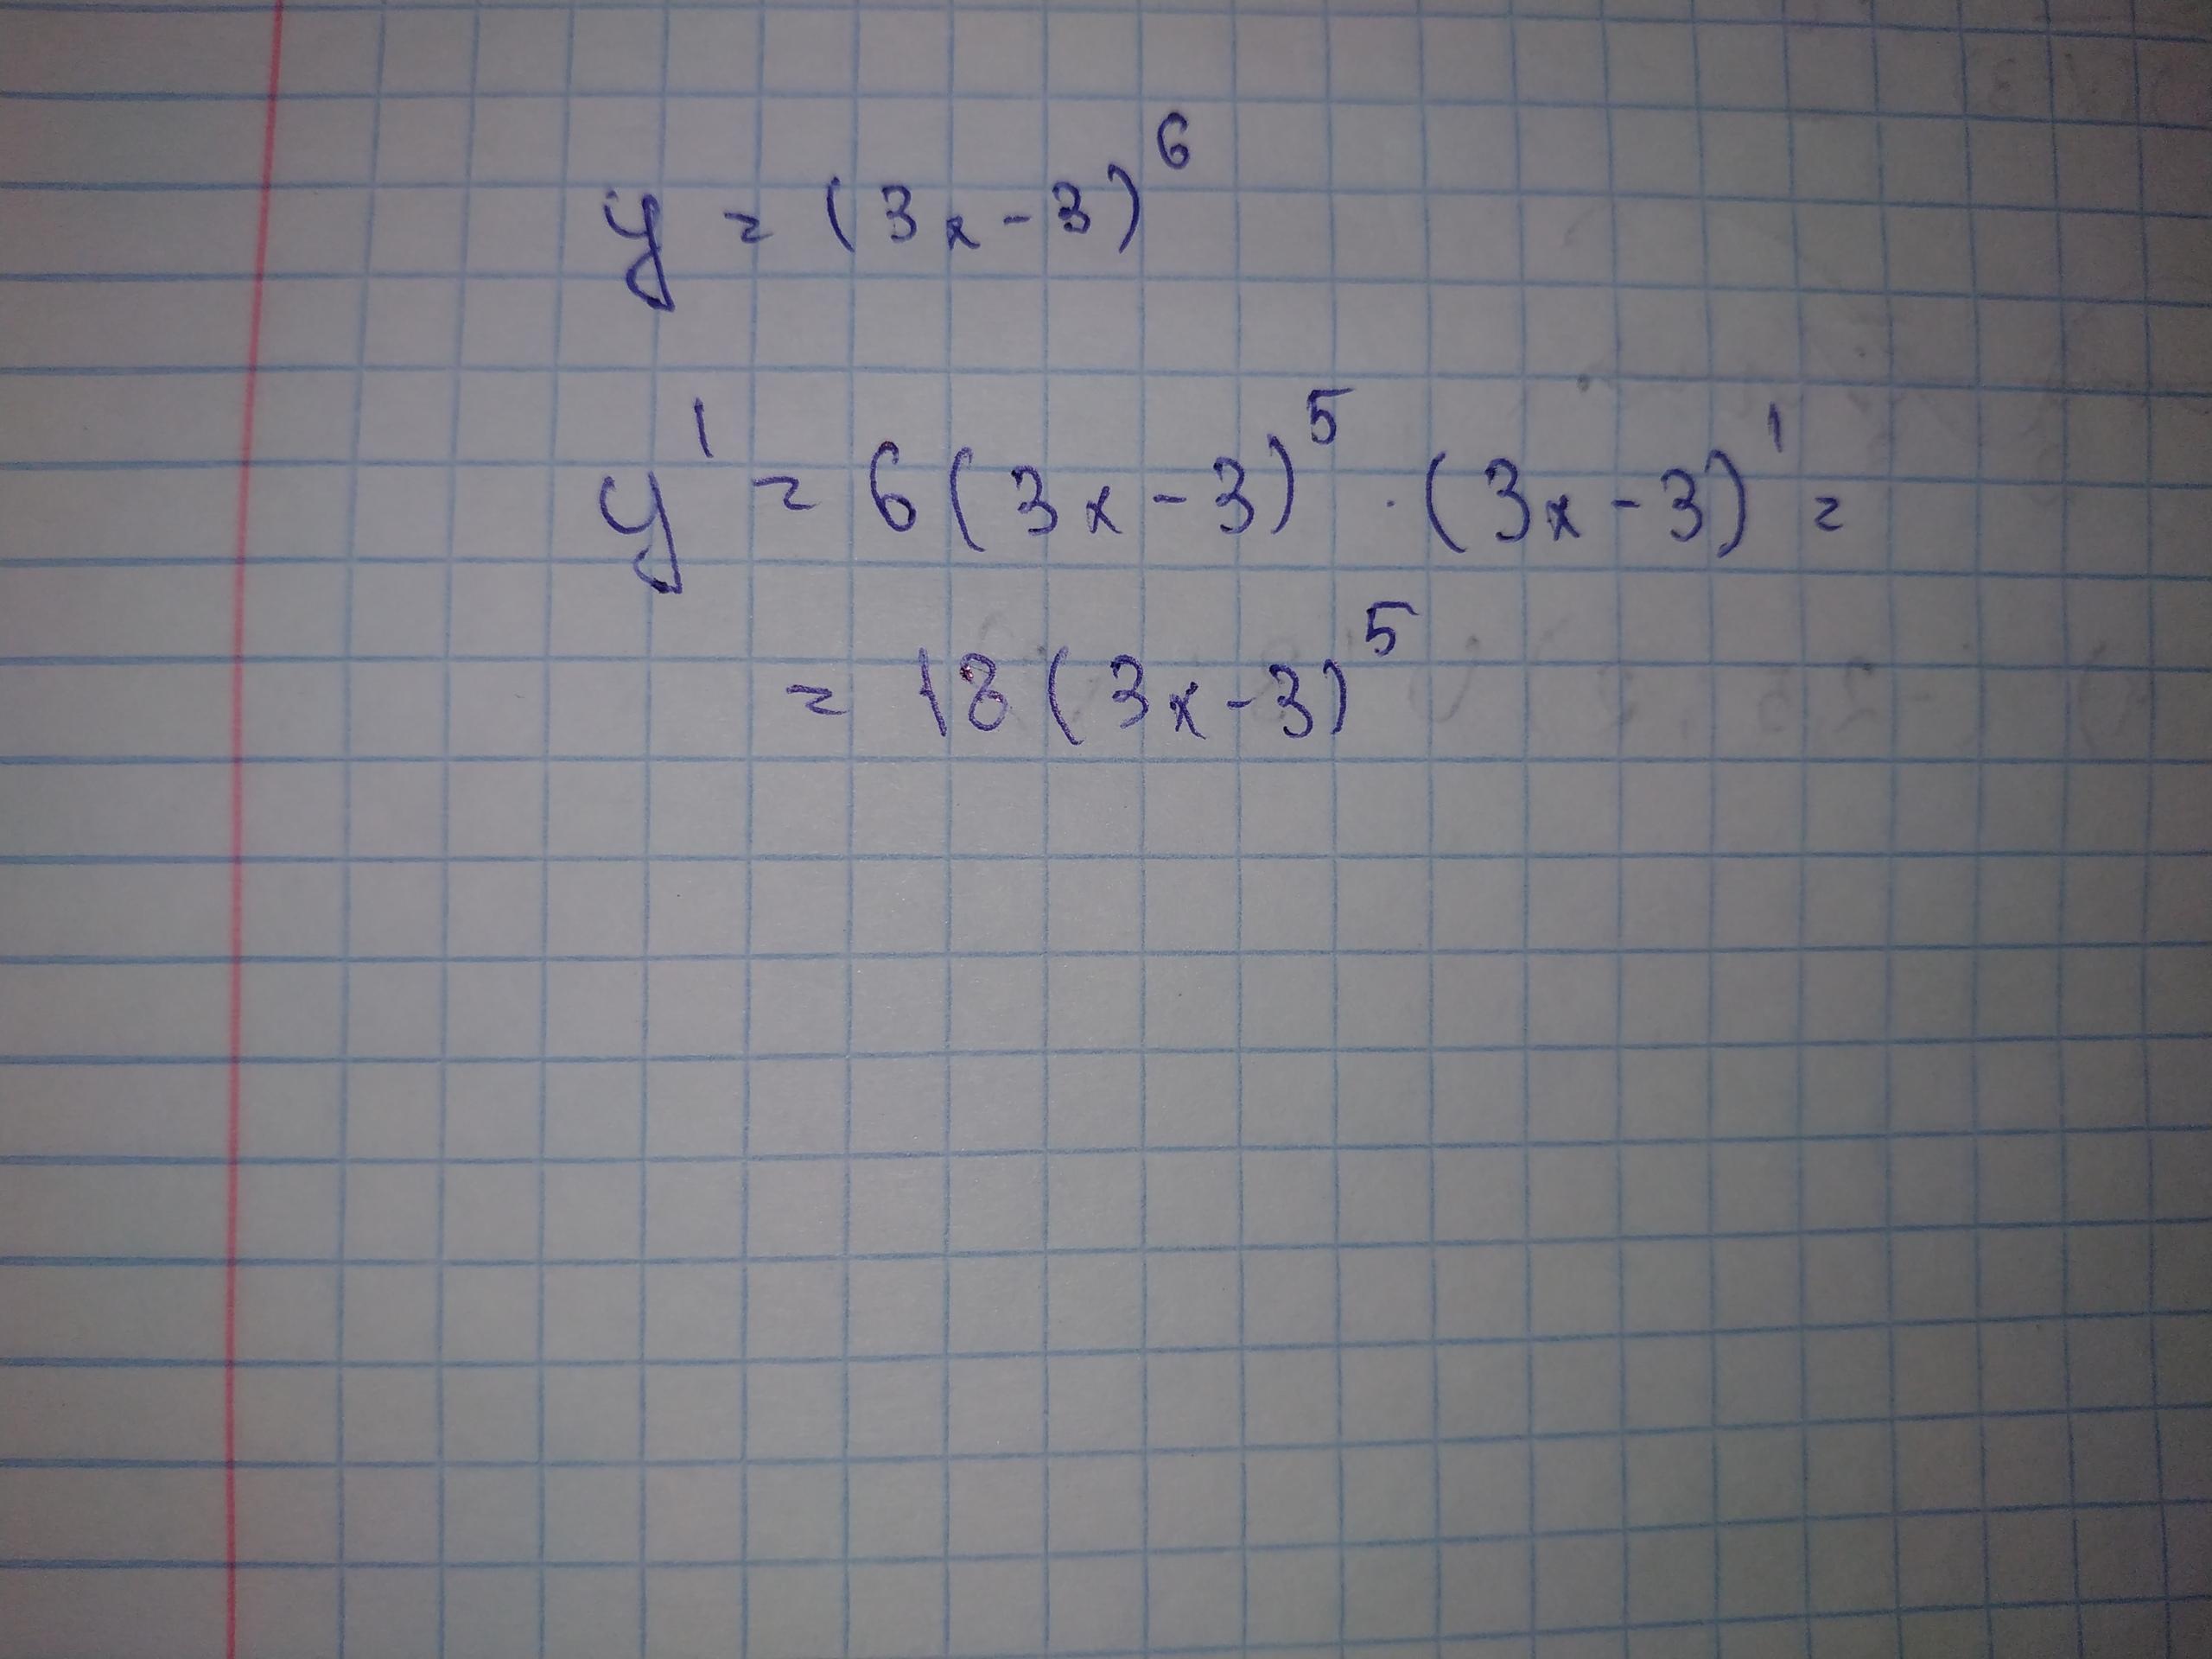 y = (3x-3)⁶
y' = 6(3x-3)⁵ · (3x-3)' =
= 18(3x-3)⁵